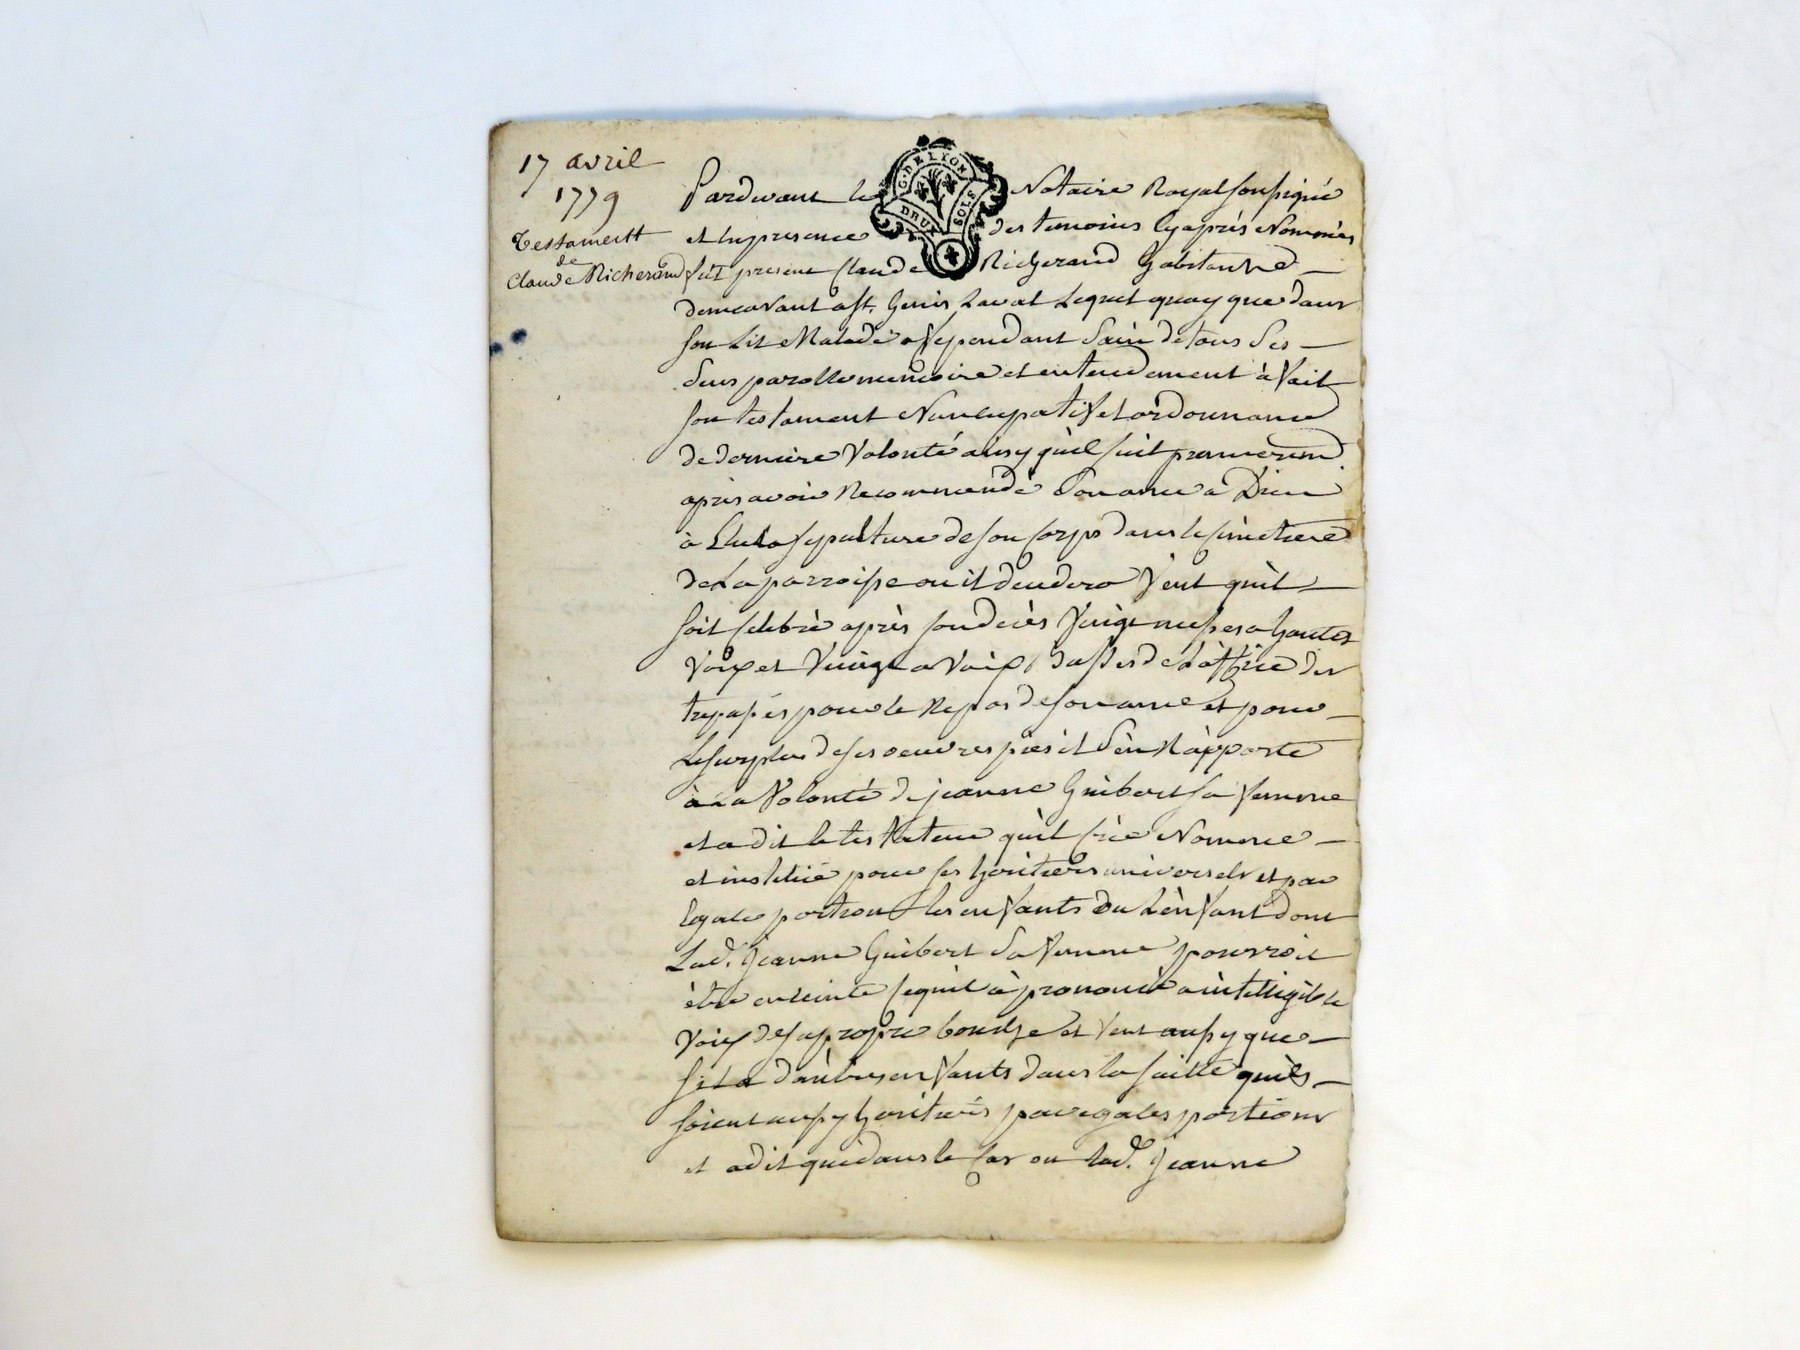 17 avril
1779
Testamentt
de
Claude Richerand
G. DE LYON
DEUX SOLS
Pardevant le Notaire Royal soussigné
et En presence des temoins Cy après Nommés
fut present Claude Richerand habitant
demeurant a St. Genis Laval Lequel quoy que dans
son Lit Malade Cependant Sain de tous Ses
Sens parolle memoire et entendement à fait
son testament Noncupatif et ordonnance
de derniere Volonté ainsy quil suit premierem
apres avoir Recommendé Son ame a Dieu
à Elu la sepulture de son Corps dans le Cimetiere
de La parroisse ou il deudera Veut quil
soit Celebré après son decès Vingt messes a hautes
Voix et Vingt a Voix basses de L'office des
trepassés pour le Repos de son ame et pour
Le surplus de ses oeuvres pies il S'en Rapporte
à La Volonté de jeanne Guibert sa femme
et a dit le testateur qu'il Crée Nomme
et institüe pour ses heritiers universels et par
Egale portion les enfants ou L'enfant dont
Lad. Jeanne Guibert Sa femme pourroit
être enceinte Ce quil à prononcé a intelligible
Voix de sa propre bouche et Veut aussy que
s'il a d'autres enfants dans la suitte quils
soient aussy heritiers par egales portions
et a dit que dans le Cas ou Lad. Jeanne